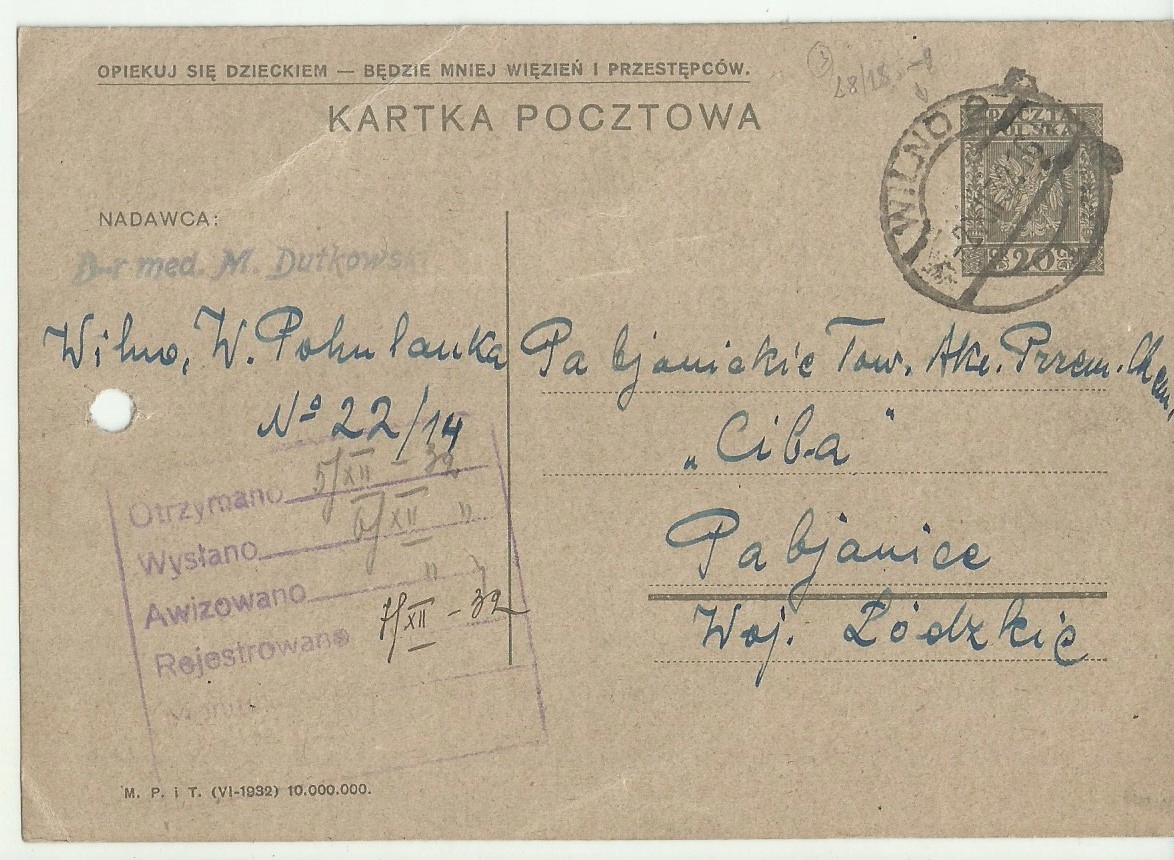 OPIEKUJ SIĘ DZIECKIEM — BĘDZIE MNIEJ WIĘZIEŃ I PRZESTĘPCÓW.
KARTKA POCZTOWA
WILNO 2
POCZTA
POLSKA
20
NADAWCA:
D-r med. M. Dutkowski
Wilno, W. Pohulanka
№ 22/14
Pabjanickie Tow. Akc. Przem. Chem.
„Ciba"
Pabjanice
Woj. Łódzkie
Otrzymano 5/XII - 32
Wysłano 6/XII "
Awizowano " "
Rejestrowano 7/XII - 32
M. P. i T. (VI-1932) 10.000.000.